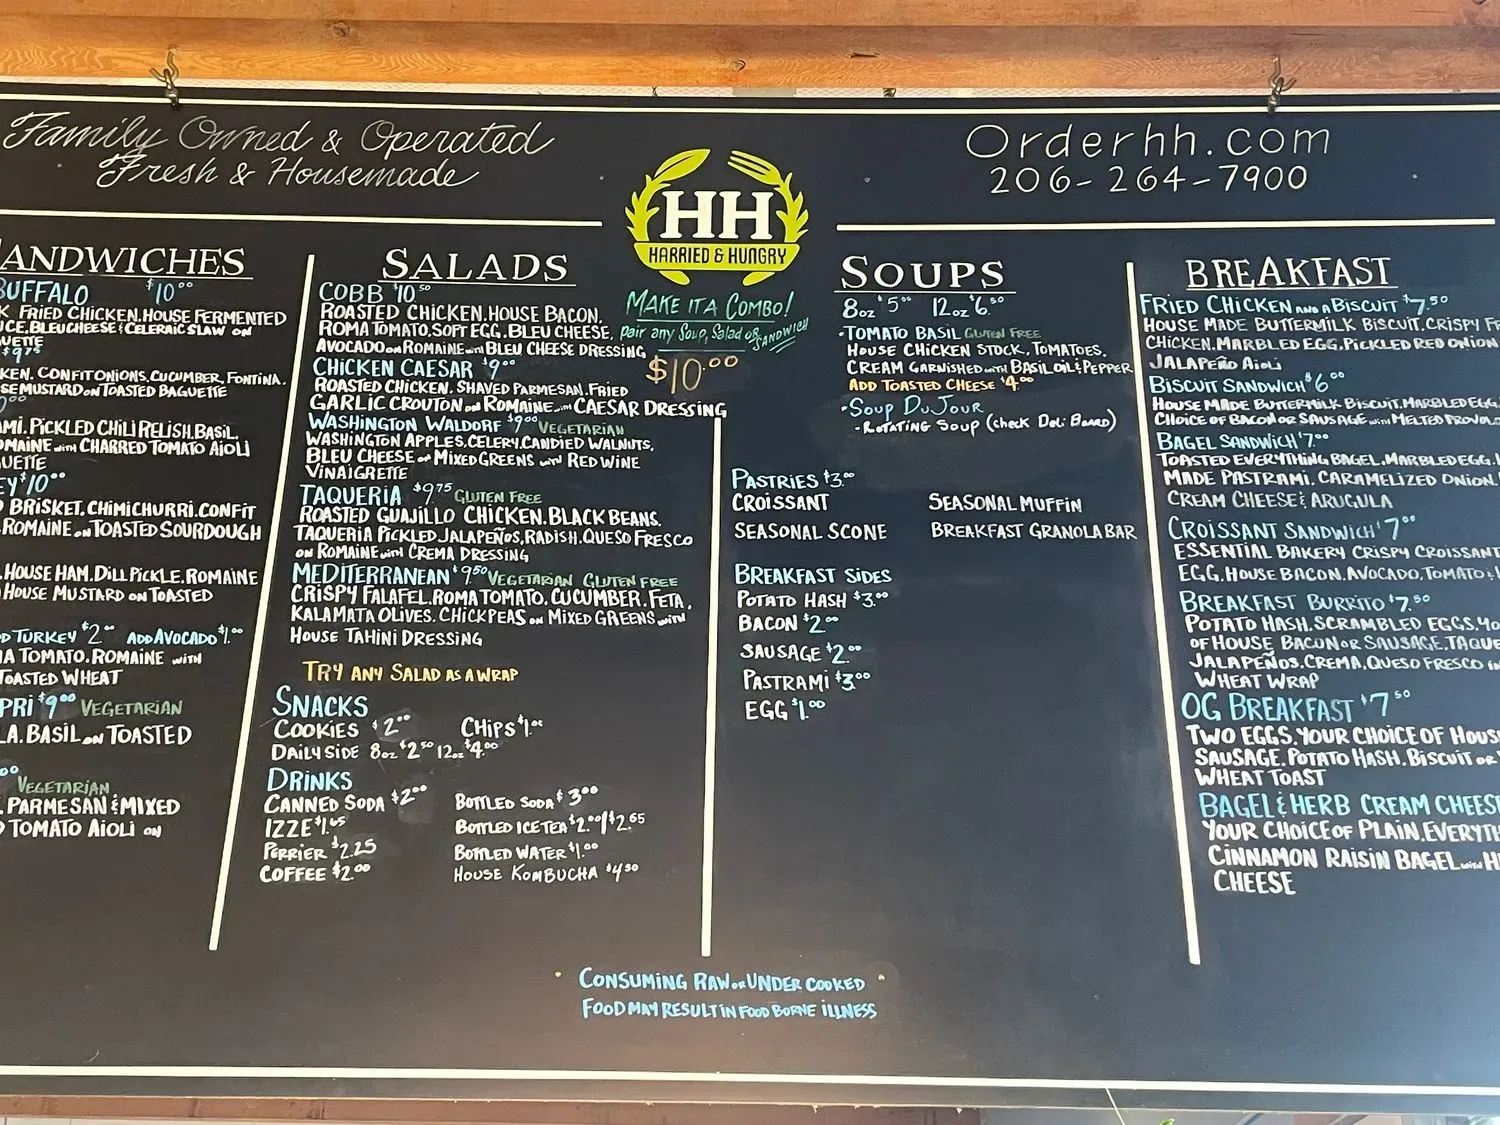 Family Owned & Operated
Fresh & Housemade
HH
HARRIED & HUNGRY
Orderhh.com
206-264-7900
ANDWICHES
BUFFALO $10.00
FRIED CHICKEN. HOUSE FERMENTED
BLEU CHEESE & CELERIAC SLAW ON
$9.75
CONFIT ONIONS. CUCUMBER. FONTINA.
MUSTARD ON TOASTED BAGUETTE
PICKLED CHILI RELISH. BASIL.
WITH CHARRED TOMATO AIOLI
$10.00
BRISKET. CHIMICHURRI. CONFIT
ROMAINE ON TOASTED SOURDOUGH
HOUSE HAM. DILL PICKLE. ROMAINE
HOUSE MUSTARD ON TOASTED
TURKEY $2.00 ADD AVOCADO $1.00
TOMATO. ROMAINE WITH
TOASTED WHEAT
PRI $9.00 VEGETARIAN
LA. BASIL ON TOASTED
VEGETARIAN
PARMESAN & MIXED
TOMATO AIOLI ON
SALADS
COBB $10.50
ROASTED CHICKEN. HOUSE BACON.
ROMA TOMATO. SOFT EGG. BLEU CHEESE.
AVOCADO ON ROMAINE WITH BLEU CHEESE DRESSING
CHICKEN CAESAR $9.00
ROASTED CHICKEN. SHAVED PARMESAN. FRIED
GARLIC CROUTON ON ROMAINE WITH CAESAR DRESSING
WASHINGTON WALDORF $9.00 VEGETARIAN
WASHINGTON APPLES. CELERY. CANDIED WALNUTS.
BLEU CHEESE ON MIXED GREENS WITH RED WINE
VINAIGRETTE
TAQUERIA $9.75 GLUTEN FREE
ROASTED GUAJILLO CHICKEN. BLACK BEANS.
TAQUERIA PICKLED JALAPEÑOS. RADISH. QUESO FRESCO
ON ROMAINE WITH CREMA DRESSING
MEDITERRANEAN $9.50 VEGETARIAN GLUTEN FREE
CRISPY FALAFEL. ROMA TOMATO. CUCUMBER. FETA.
KALAMATA OLIVES. CHICKPEAS ON MIXED GREENS WITH
HOUSE TAHINI DRESSING
TRY ANY SALAD AS A WRAP
SNACKS
COOKIES $2.00 CHIPS $1.00
DAILY SIDE 8oz $2.50 12oz $4.00
DRINKS
CANNED SODA $2.00 BOTTLED SODA $3.00
IZZE $1.65 BOTTLED ICE TEA $2.00/$2.65
PERRIER $2.25 BOTTLED WATER $1.00
COFFEE $2.00 HOUSE KOMBUCHA $4.50
MAKE IT A COMBO!
pair any Soup, Salad or SANDWICH
$10.00
SOUPS
8oz $5.00 12oz $6.50
·TOMATO BASIL GLUTEN FREE
HOUSE CHICKEN STOCK. TOMATOES.
CREAM GARNISHED WITH BASIL OIL & PEPPER
ADD TOASTED CHEESE $4.00
·SOUP DU JOUR
-ROTATING SOUP (check Deli Board)
PASTRIES $3.00
CROISSANT SEASONAL MUFFIN
SEASONAL SCONE BREAKFAST GRANOLA BAR
BREAKFAST SIDES
POTATO HASH $3.00
BACON $2.00
SAUSAGE $2.00
PASTRAMI $3.00
EGG $1.00
BREAKFAST
FRIED CHICKEN AND A BISCUIT $7.50
HOUSE MADE BUTTERMILK BISCUIT. CRISPY FR
CHICKEN. MARBLED EGG. PICKLED RED ONION
JALAPEÑO AIOLI
BISCUIT SANDWICH $6.00
HOUSE MADE BUTTERMILK BISCUIT. MARBLED EGG.
CHOICE OF BACON OR SAUSAGE WITH MELTED PROVOL
BAGEL SANDWICH $7.00
TOASTED EVERYTHING BAGEL. MARBLED EGG.
MADE PASTRAMI. CARAMELIZED ONION.
CREAM CHEESE & ARUGULA
CROISSANT SANDWICH $7.00
ESSENTIAL BAKERY CRISPY CROISSANT
EGG. HOUSE BACON. AVOCADO. TOMATO &
BREAKFAST BURRITO $7.50
POTATO HASH. SCRAMBLED EGGS. YO
OF HOUSE BACON OR SAUSAGE. TAQUE
JALAPEÑOS. CREMA. QUESO FRESCO IN
WHEAT WRAP
OG BREAKFAST $7.50
TWO EGGS. YOUR CHOICE OF HOUS
SAUSAGE. POTATO HASH. BISCUIT OR
WHEAT TOAST
BAGEL & HERB CREAM CHEESE
YOUR CHOICE OF PLAIN. EVERYTH
CINNAMON RAISIN BAGEL WITH H
CHEESE
CONSUMING RAW OR UNDER COOKED
FOOD MAY RESULT IN FOOD BORNE ILLNESS